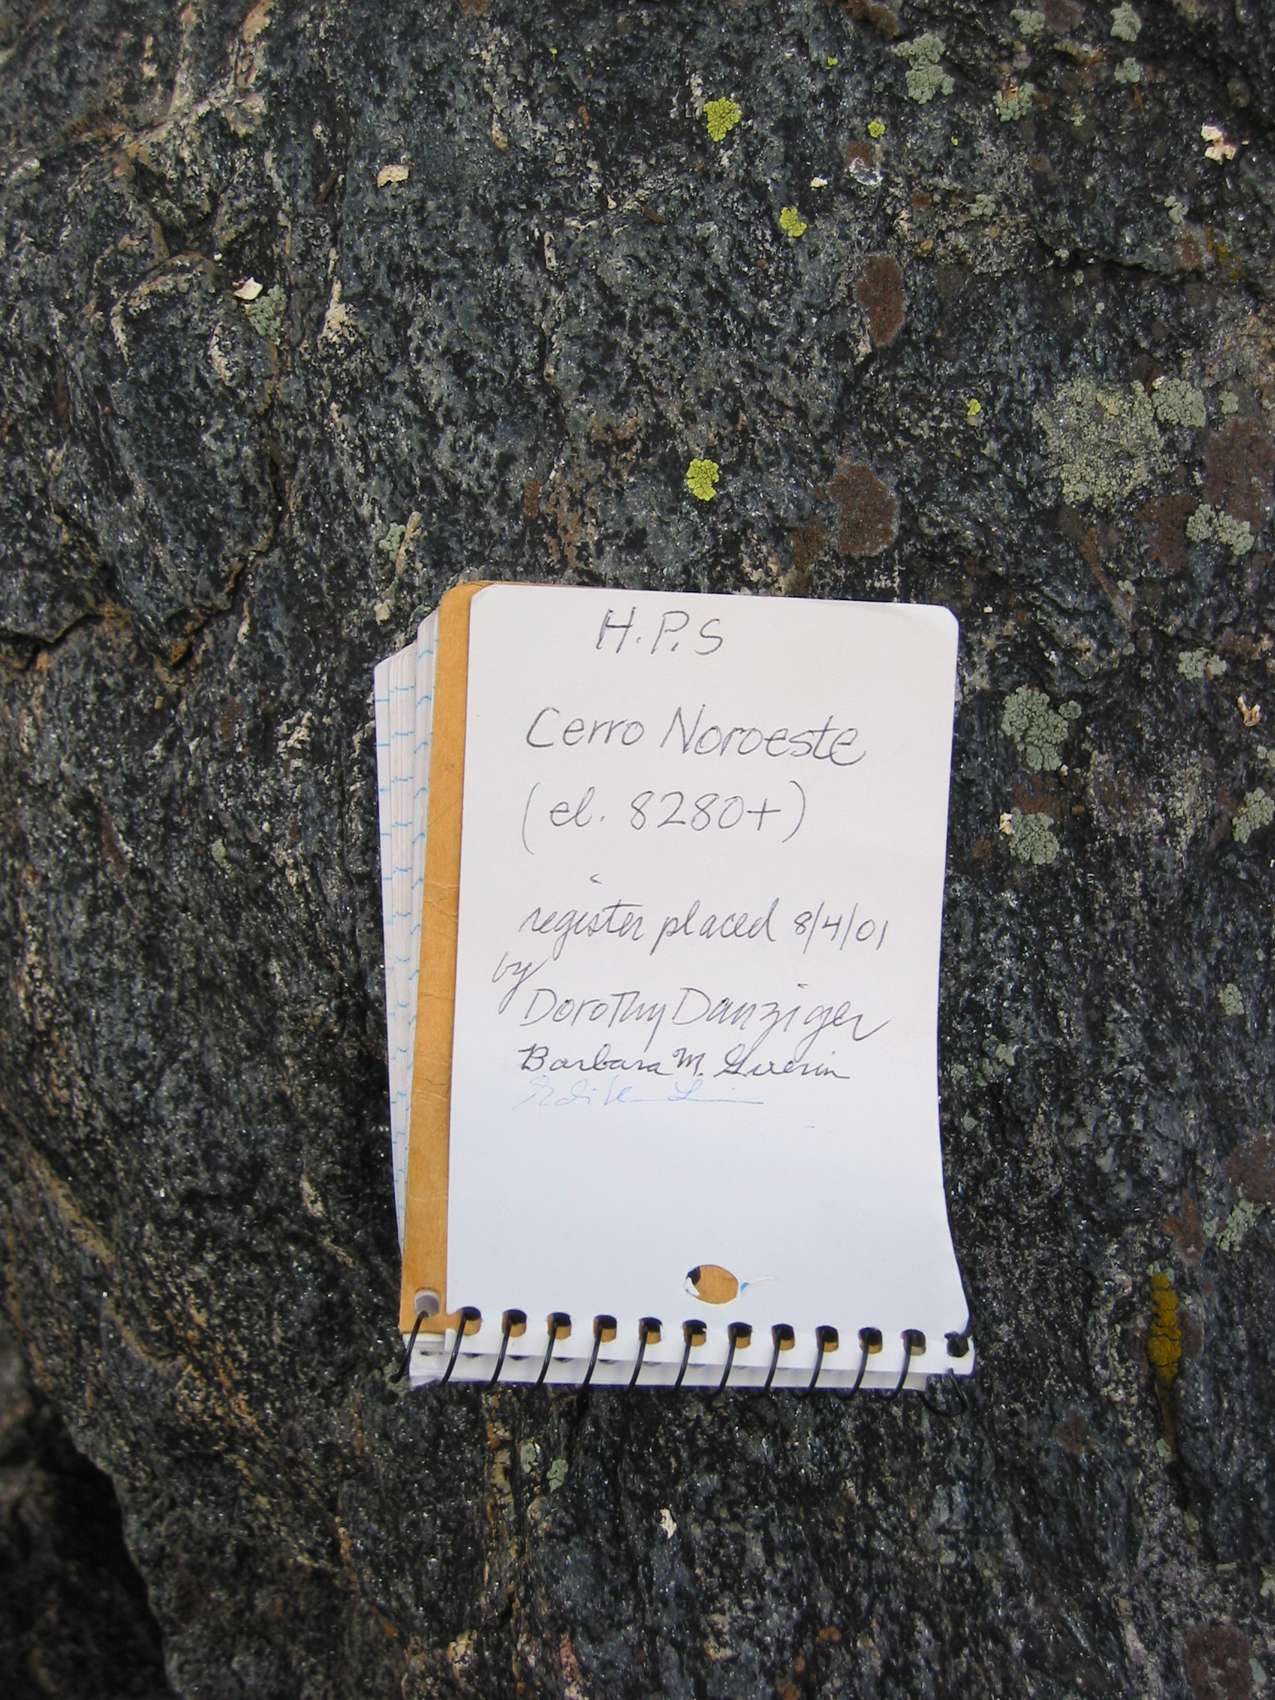 H.P.S
Cerro Noroeste
(el. 8280+)
register placed 8/4/01
by
Dorothy Danziger
Barbara M. Guerin